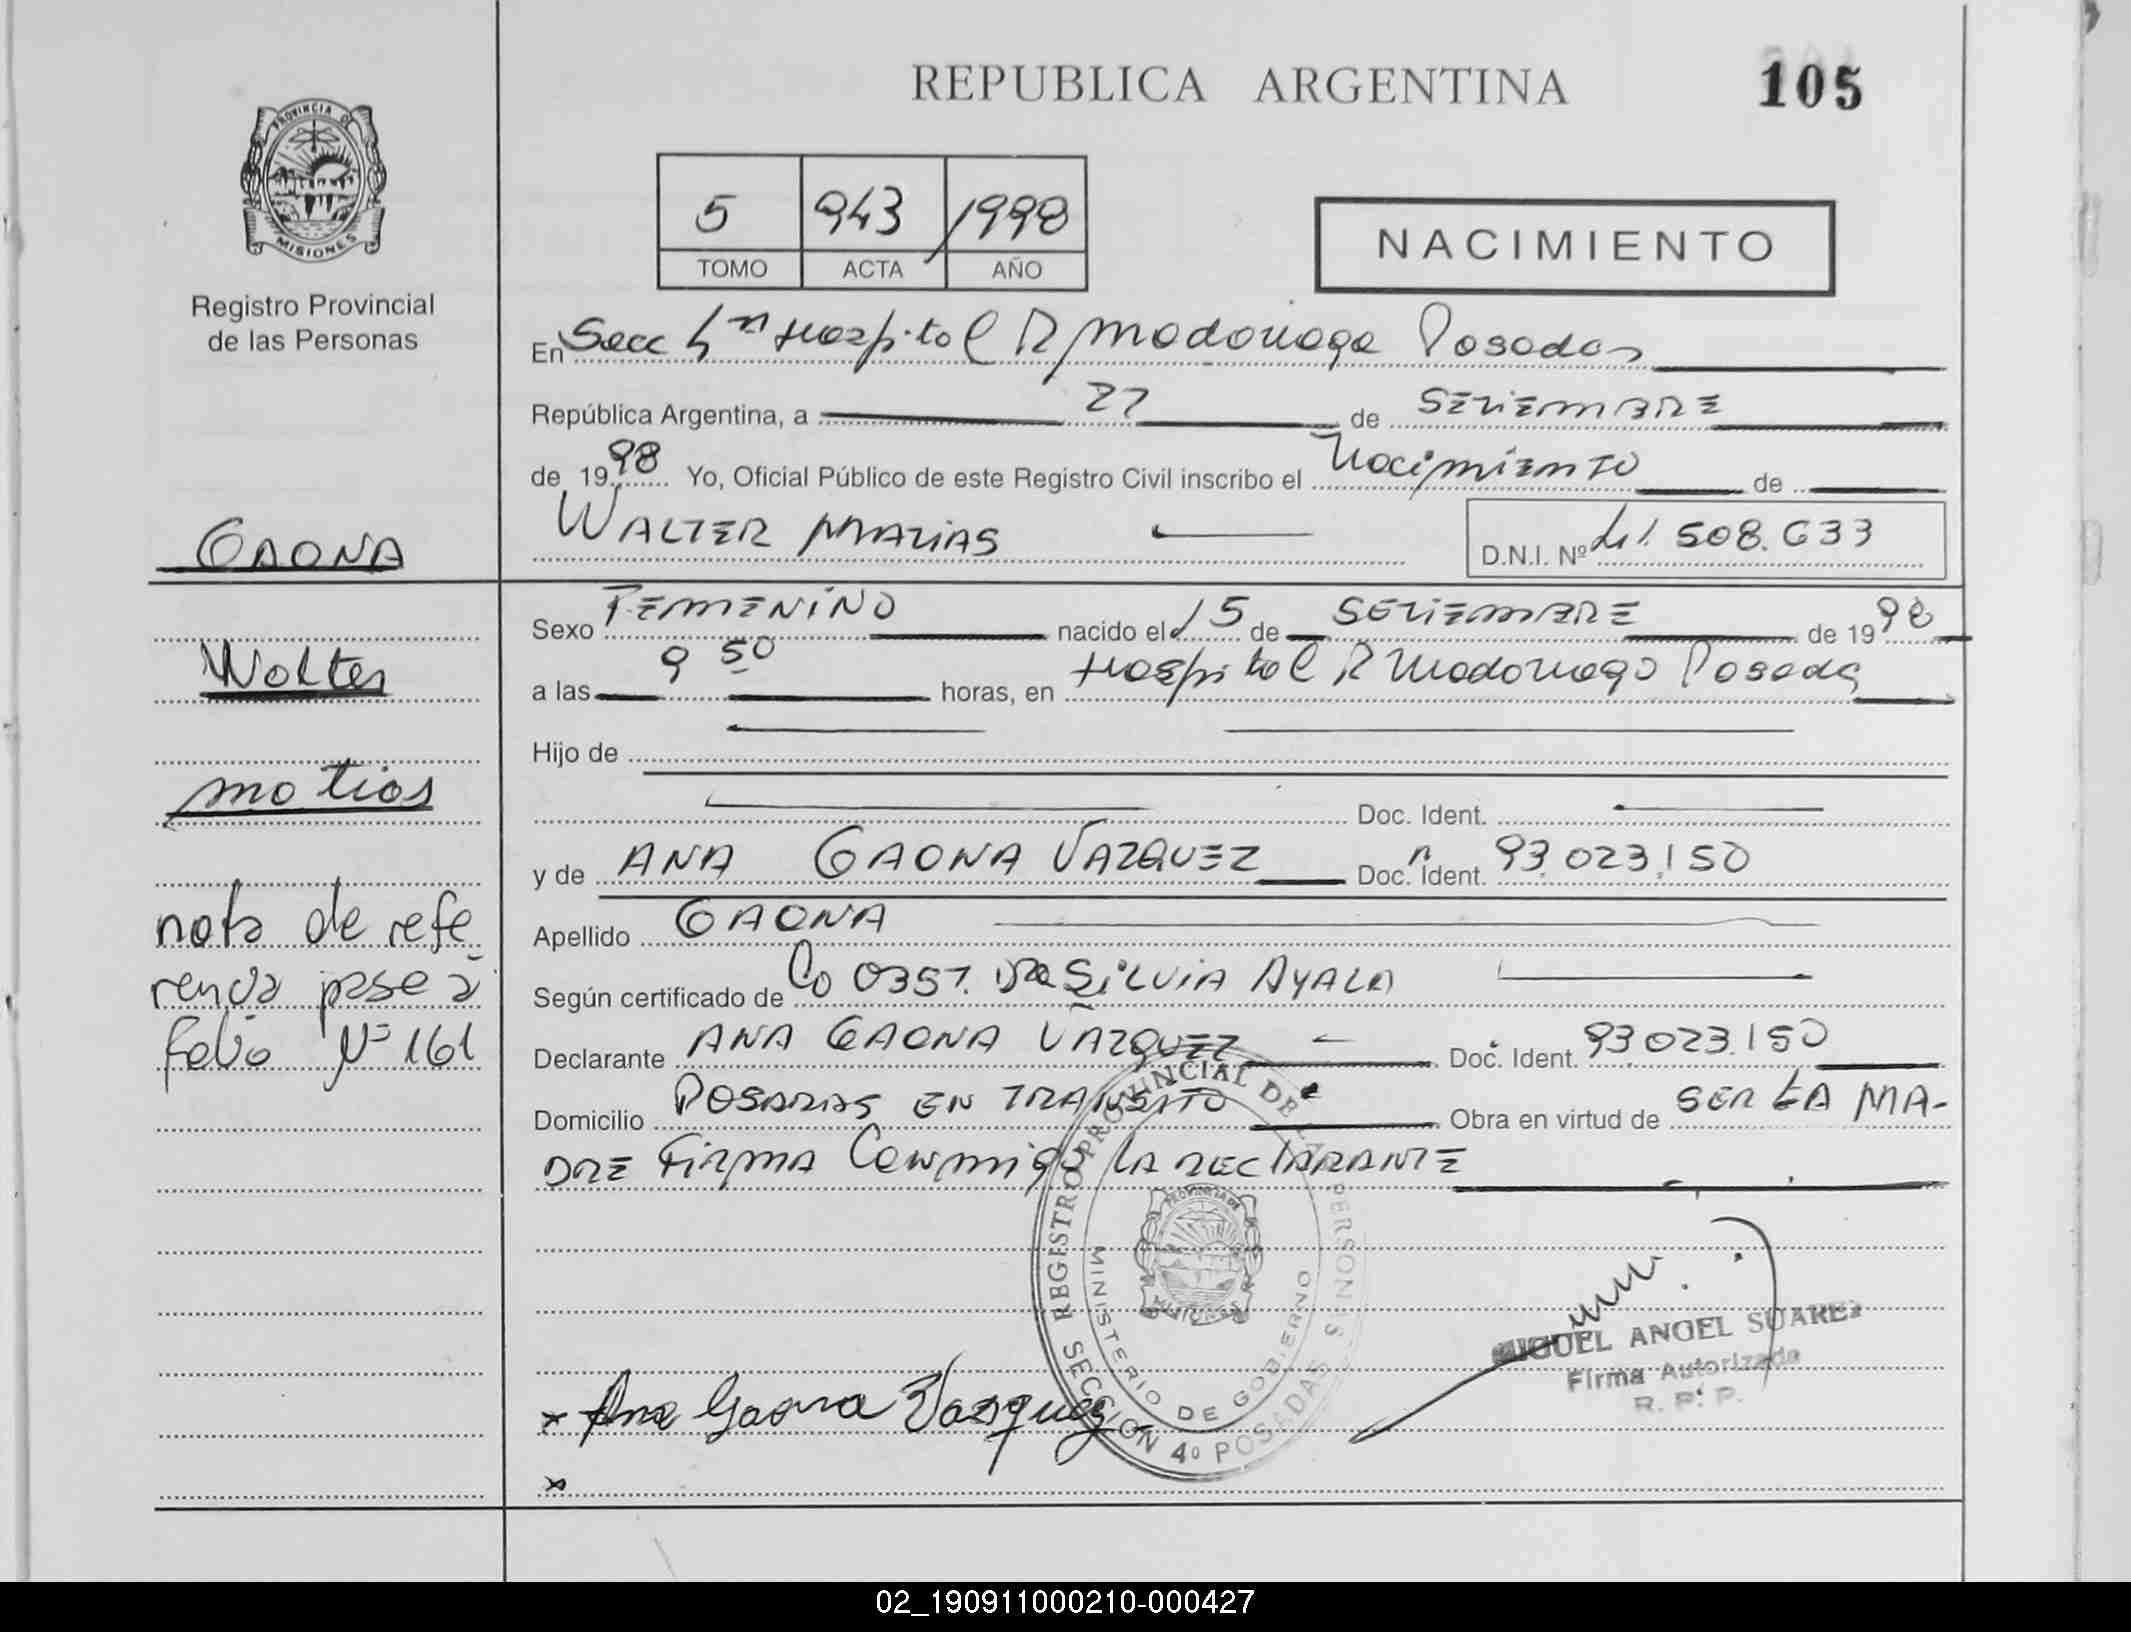 REPUBLICA ARGENTINA
105
PROVINCIA DE
MISIONES
Registro Provincial
de las Personas
5 943 /1998
TOMO ACTA AÑO
NACIMIENTO
En Secc 4ta Hospital R Madariaga Posadas
República Argentina, a 27 de SETIEMBRE
de 1998 Yo, Oficial Público de este Registro Civil inscribo el Nacimiento de
WALTER MATIAS
D.N.I. Nº 41.508.633
GAONA
Walter
matias
nota de refe
rencia pase a
folio Nº 161
Sexo FEMENINO nacido el 15 de SETIEMBRE de 1998
a las 9 50 horas, en Hospital R Madariaga Posadas
Hijo de
Doc. Ident.
y de ANA GAONA VAZQUEZ Doc. Ident. 93.023.150
Apellido GAONA
Según certificado de Co 0357. DRA SILVIA AYALA
Declarante ANA GAONA VAZQUEZ Doc. Ident. 93023.150
Domicilio POSADAS EN TRANSITO Obra en virtud de SER LA MA-
DRE FIRMA Conmigo LA DECLARANTE
REGISTRO PROVINCIAL DE LAS PERSONAS
SECCION 4º POSADAS
MINISTERIO DE GOBIERNO
PROVINCIA DE
MISIONES
MIGUEL ANGEL SUAREZ
Firma Autorizada
R. P. P.
x Ana Gaona Vazquez
x
02_190911000210-000427